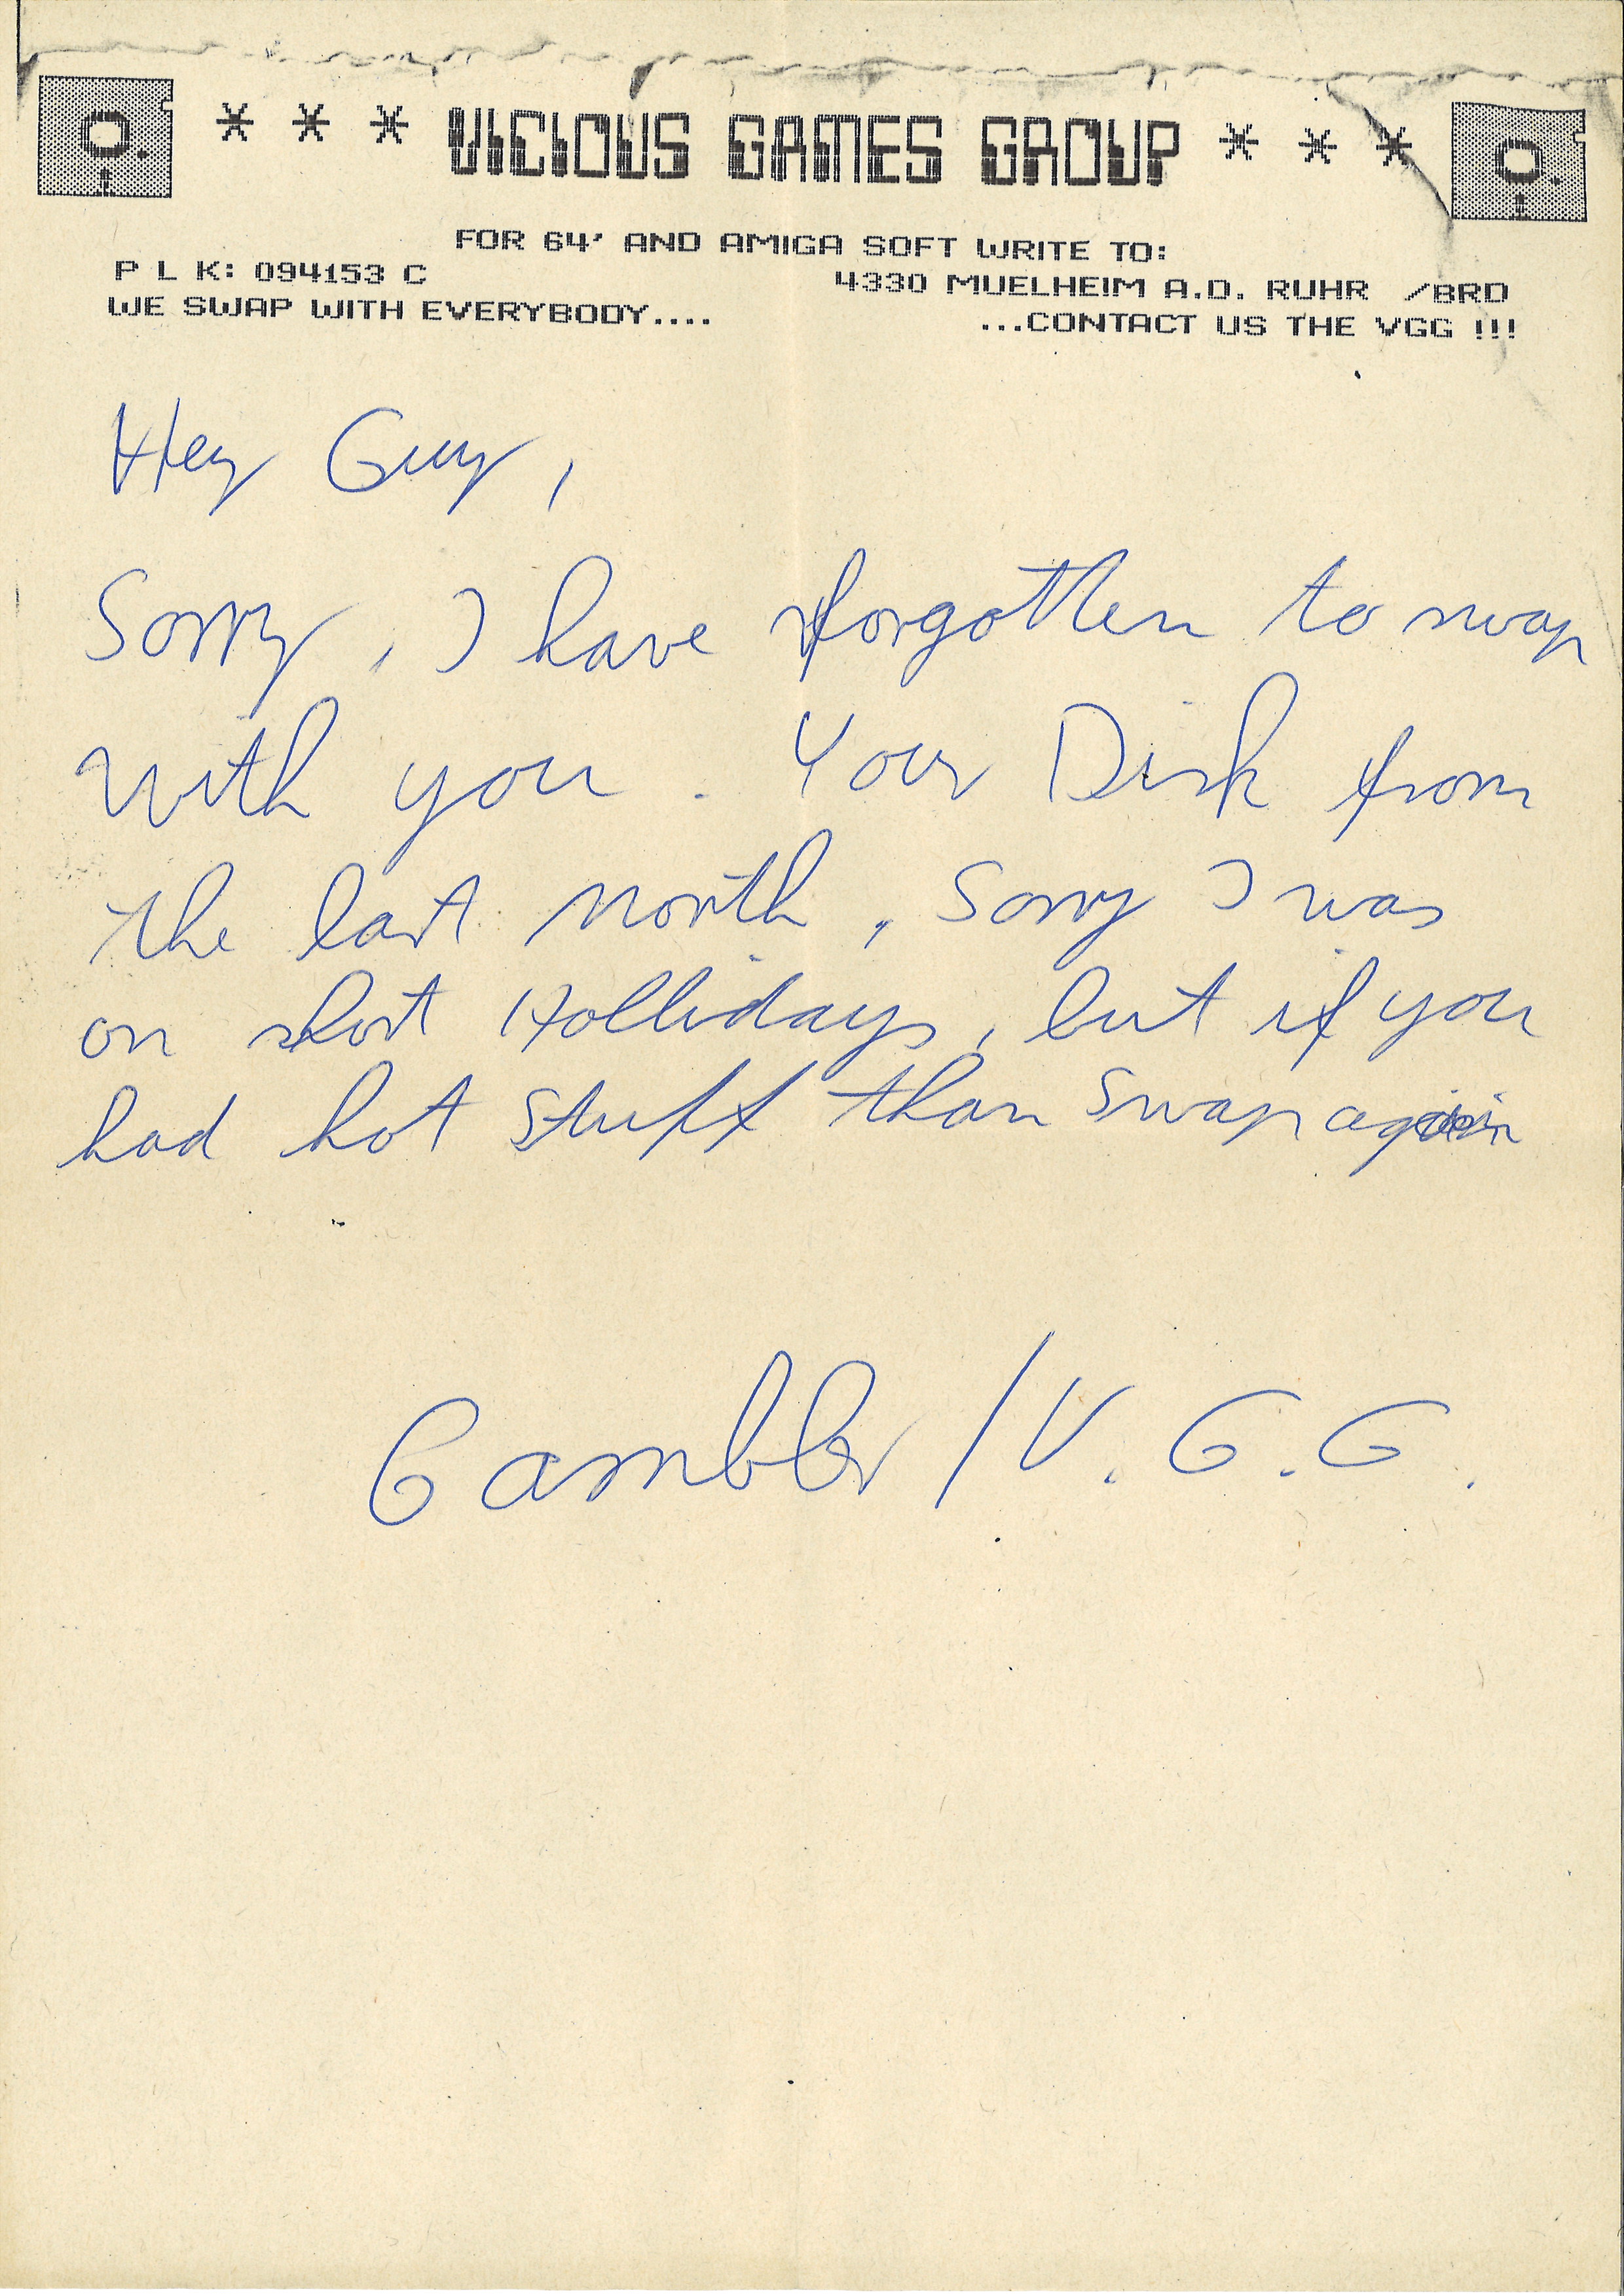 * * * VICIOUS GAMES GROUP * * *
FOR 64' AND AMIGA SOFT WRITE TO:
P L K: 094153 C 4330 MUELHEIM A.D. RUHR /BRD
WE SWAP WITH EVERYBODY.... ...CONTACT US THE VGG !!!
Hey Guy,
Sorry, I have forgotten to swap
with you. Your Disk from
the last month, Sorry I was
on short Hollidays, but if you
had hot Stuff than Swap again
Gambler / V.G.G.